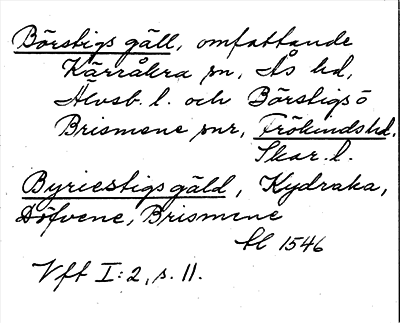 Börstigs gäll, omfattande
Kärråkra sn, Ås hd,
Älvsb. l. och Börstigs o
Brismene snr, Frökindshd.
Skar. l.
Byriestigs gäld, Kydraka,
Döfvene, Brismene
1546
Vft I:2, s. 11.